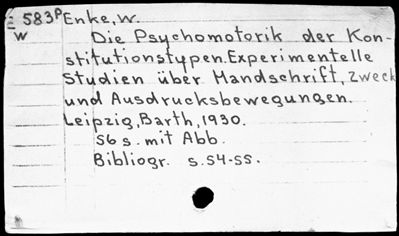 583P Enke, W.
W
Die Psychomotorik der Kon-
stitutionstypen. Experimentelle
Studien über Handschrift, Zweck
und Ausdrucksbewegungen.
Leipzig, Barth, 1930.
56 s. mit Abb.
Bibliogr. s. 54-55.